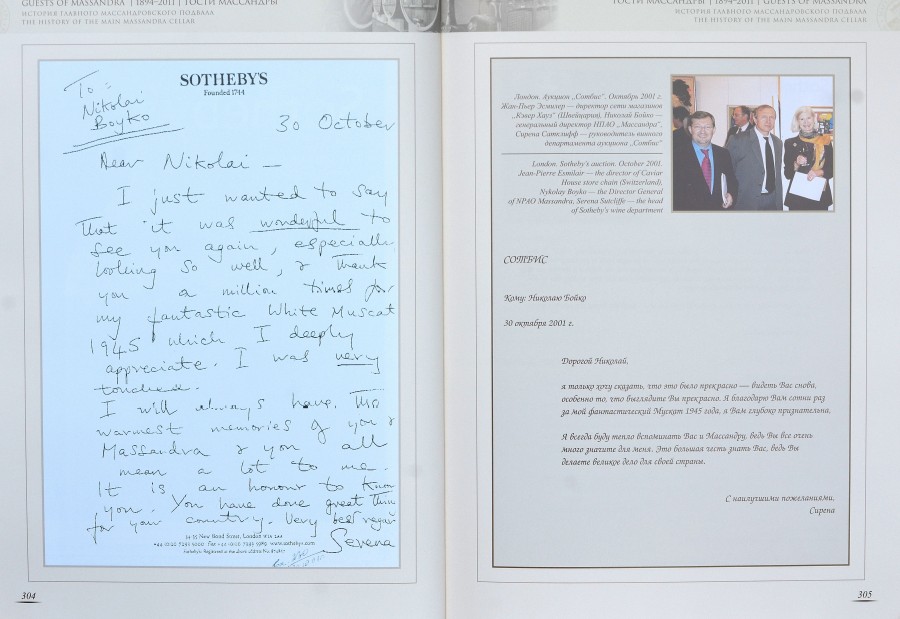 GUESTS OF MASSANDRA | 1894-2011 | ГОСТИ МАССАНДРЫ
ИСТОРИЯ ГЛАВНОГО МАССАНДРОВСКОГО ПОДВАЛА
THE HISTORY OF THE MAIN MASSANDRA CELLAR
To:
Nikolai
Boyko
SOTHEBY'S
Founded 1744
30 October
Dear Nikolai —
I just wanted to say
that it was wonderful to
see you again, especially
looking so well, & thank
you a million times for
my fantastic White Muscat
1945 which I deeply
appreciate. I was very
touched.
I will always have the
warmest memories of you &
Massandra & you all
mean a lot to me.
It is an honour to know
you. You have done great thin
for your country. Very best regar
Serena
34-35 New Bond Street, London W1A 2AA
304
ГОСТИ МАССАНДРЫ | 1894-2011 | GUESTS OF MASSANDRA
ИСТОРИЯ ГЛАВНОГО МАССАНДРОВСКОГО ПОДВАЛА
THE HISTORY OF THE MAIN MASSANDRA CELLAR
Лондон. Аукцион „Сотбис“. Октябрь 2001 г.
Жан-Пьер Эсмилер — директор сети магазинов
„Кэвер Хауз“ (Швейцария), Николай Бойко —
генеральный директор НПАО „Массандра“,
Сирена Сатклифф — руководитель винного
департамента аукциона „Сотбис“
London. Sotheby's auction. October 2001.
Jean-Pierre Esmilair — the director of Caviar
House store chain (Switzerland),
Nykolay Boyko — the Director General
of NPAO Massandra, Serena Sutcliffe — the head
of Sotheby's wine department
СОТБИС
Кому: Николаю Бойко
30 октября 2001 г.
Дорогой Николай,
я только хочу сказать, что это было прекрасно — видеть Вас снова,
особенно то, что выглядите Вы прекрасно. Я благодарю Вам сотни раз
за мой фантастический Мускат 1945 года, я Вам глубоко признательна.
Я всегда буду тепло вспоминать Вас и Массандру, ведь Вы все очень
много значите для меня. Это большая честь знать Вас, ведь Вы
делаете великое дело для своей страны.
С наилучшими пожеланиями,
Сирена
305